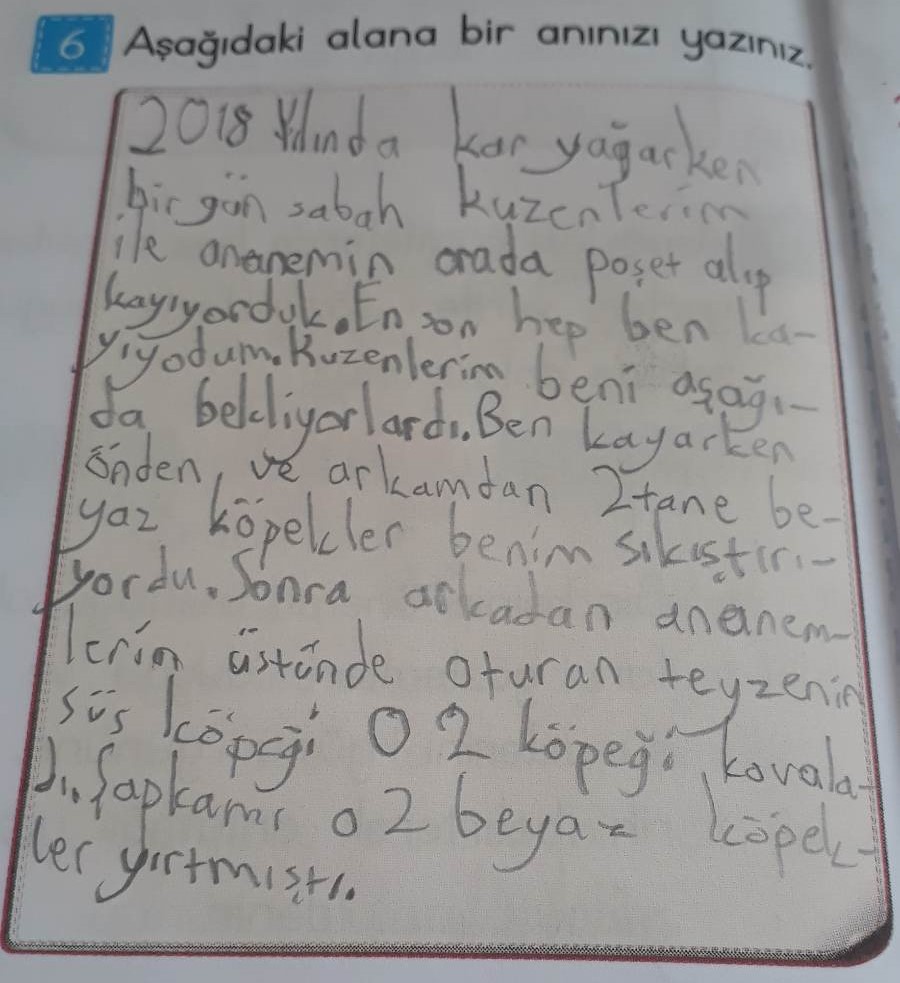 6 Aşağıdaki alana bir anınızı yazınız.
2018 Yılında kar yağarken
bir gün sabah kuzenlerim
ile ananemin orada poşet alıp
kayıyorduk. En son hep ben ka-
yıyodum. Kuzenlerim beni aşağı-
da bekliyorlardı. Ben kayarken
önden, ve arkamdan 2tane be-
yaz köpekler benim sıkıştırı-
yordu. Sonra arkadan ananem-
lerin üstünde oturan teyzenin
süs köpeği O 2 köpeği kovala-
dı. Şapkamı o 2 beyaz köpek-
ler yırtmıştı.